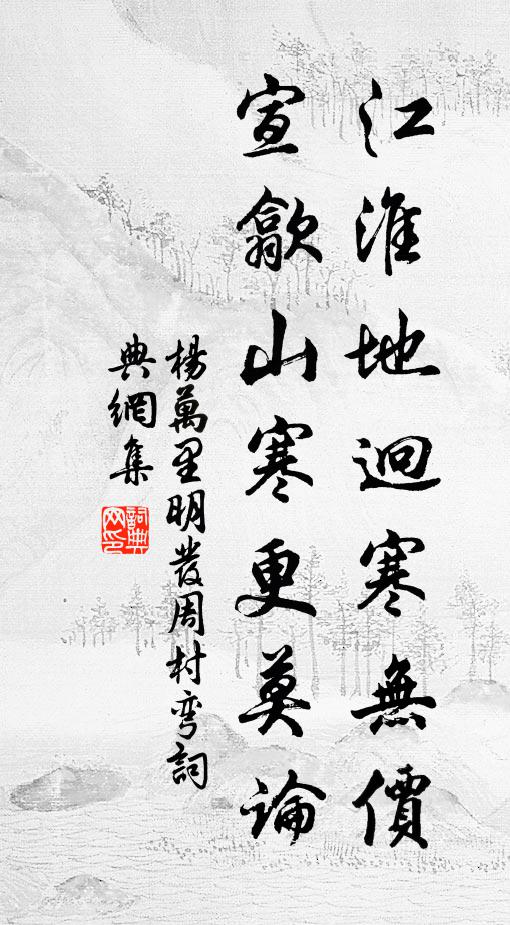 江淮地迥寒無價
宣歙山寒更莫論
楊萬里明發周村彎詞
典網集
詞典网印